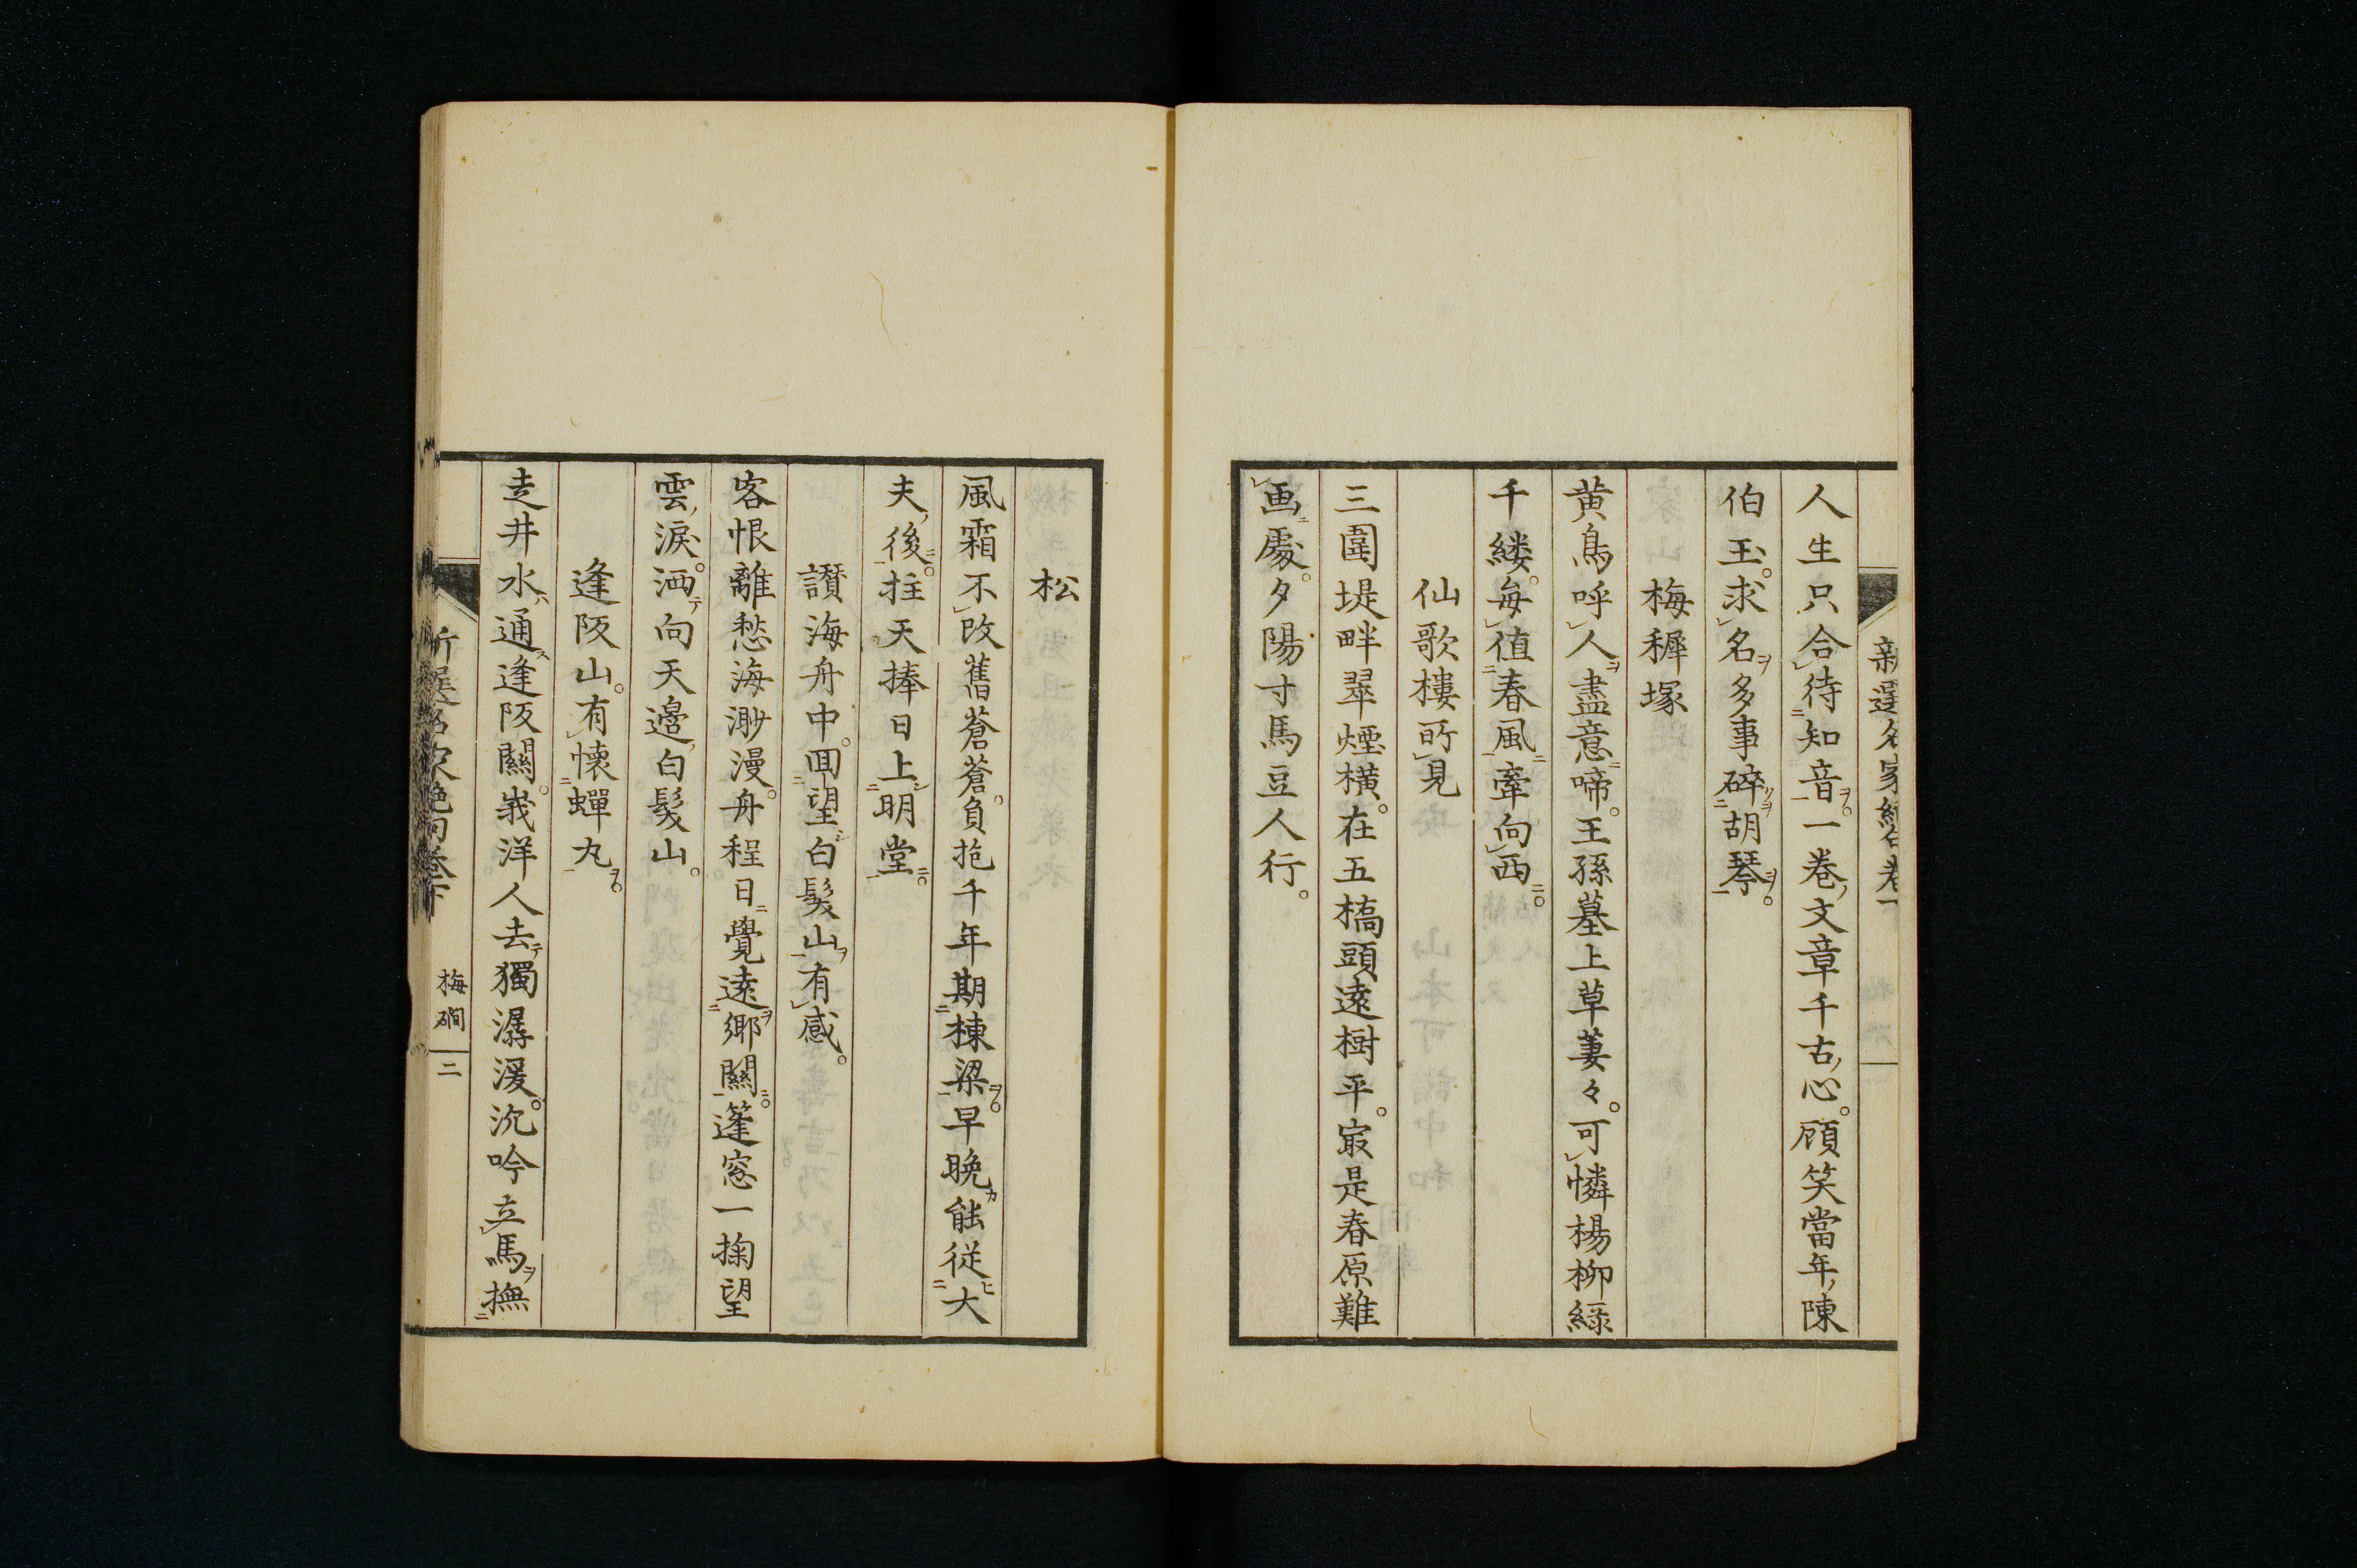 人生只合待知音一卷文章千古心顧笑當年陳
伯玉求名多事碎胡琴
梅穉塚
黄鳥呼人盡意啼王孫墓上草萋々可憐楊柳緑
千縷毎值春風牽向西
仙歌樓所見
三圍堤畔翠煙横在五橋頭遠樹平㝡是春原難
画處夕陽寸馬豆人行
松
風霜不改舊蒼蒼負抱千年期棟梁早晩能従大
夫後拄天捧日上明堂
讃海舟中囬望白髪山有感
客恨離愁海渺漫舟程日覺遠郷關篷窓一掬望
雲淚洒向天邊白髪山
逢阪山有懐蟬丸
走井水通逢阪關峩洋人去獨潺湲沉吟立馬撫
梅磵 二